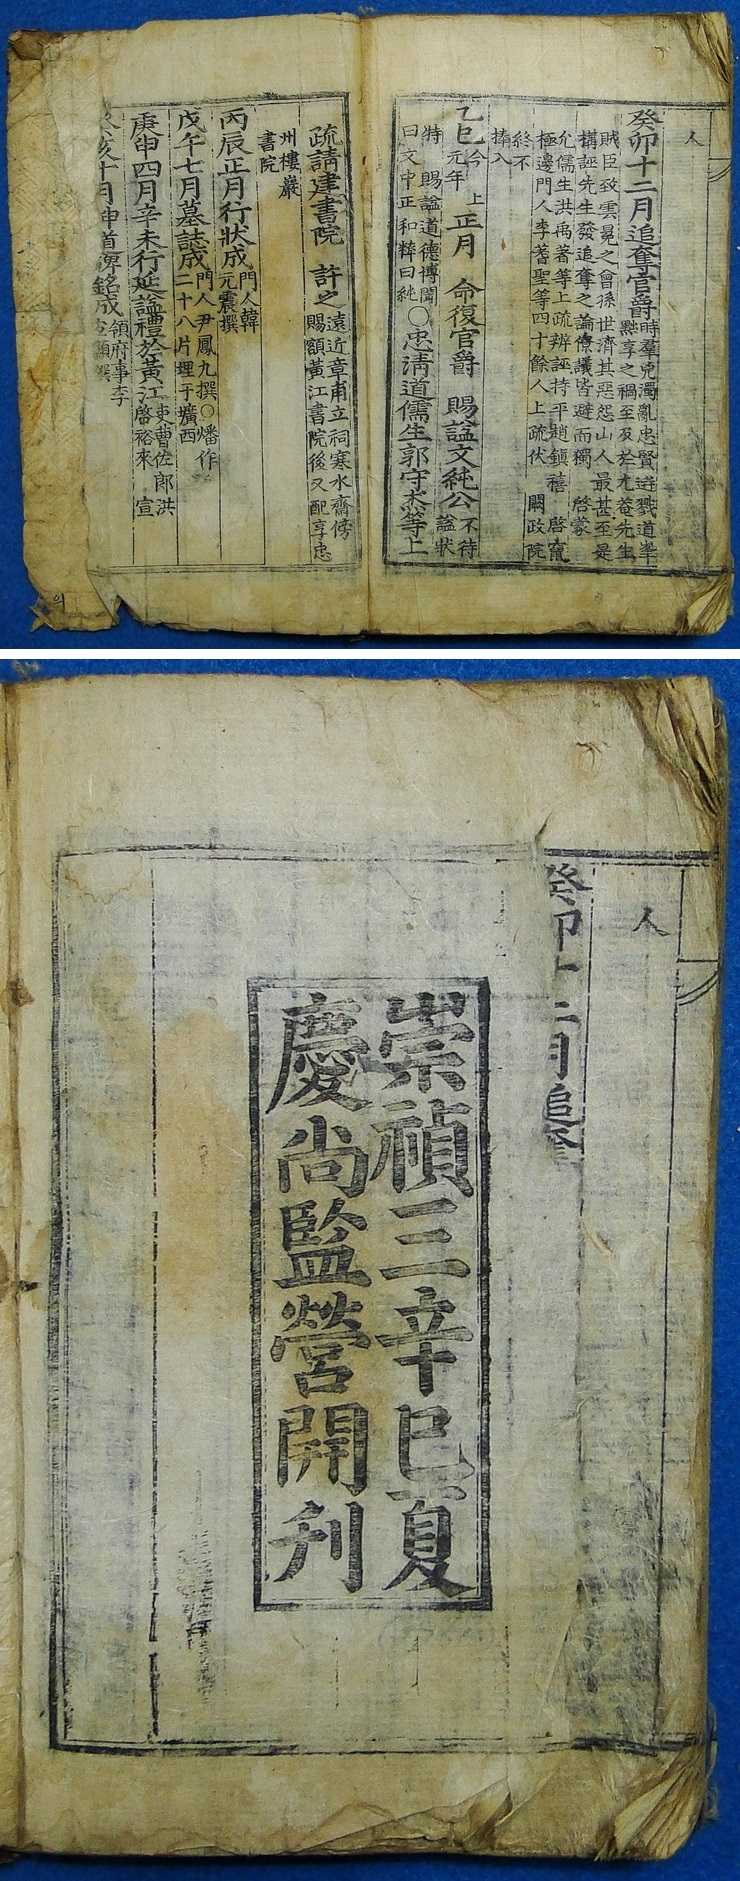 人
癸卯十二月追奪官爵時羣兇濁亂忠賢進戮道峯
黜享之禍至及於尤菴先生
賊臣致雲晃之曾孫世濟其惡怨山人最甚至是
構誣先生發追奪之論僚議皆避而獨啓蒙
允儒生洪禹著等上疏辨誣持平趙鎭禧啓竄
極邊門人李蓍聖等四十餘人上疏伏闕政院
終不
捧入
乙巳今上
元年正月命復官爵賜諡文純公不待
諡狀
特賜諡道德博聞
曰文中正和粹曰純○忠淸道儒生郭守杰等上
疏請建書院許之遠近章甫立祠寒水齋傍
賜額黃江書院後又配享忠
州樓巖
書院
丙辰正月行狀成門人韓
元震撰
戊午七月墓誌成門人尹鳳九撰○燔作
二十八片埋于壙西
庚申四月辛未行延諡禮於黃江吏曹佐郎洪
啓裕來宣
癸亥十月神道碑銘成領府事李
宜顯撰
의
人
癸卯十二月追奪
崇禎三辛巳夏
慶尙監營開刊